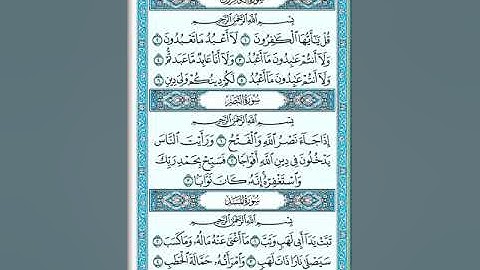 سورة الكافرون
بِسْمِ اللَّهِ الرَّحْمَٰنِ الرَّحِيمِ
قُلْ يَا أَيُّهَا الْكَافِرُونَ ١ لَا أَعْبُدُ مَا تَعْبُدُونَ ٢
وَلَا أَنتُمْ عَابِدُونَ مَا أَعْبُدُ ٣ وَلَا أَنَا عَابِدٌ مَّا عَبَدتُّمْ ٤
وَلَا أَنتُمْ عَابِدُونَ مَا أَعْبُدُ ٥ لَكُمْ دِينُكُمْ وَلِيَ دِينِ ٦
سورة النصر
بِسْمِ اللَّهِ الرَّحْمَٰنِ الرَّحِيمِ
إِذَا جَاءَ نَصْرُ اللَّهِ وَالْفَتْحُ ١ وَرَأَيْتَ النَّاسَ
يَدْخُلُونَ فِي دِينِ اللَّهِ أَفْوَاجًا ٢ فَسَبِّحْ بِحَمْدِ رَبِّكَ
وَاسْتَغْفِرْهُ إِنَّهُ كَانَ تَوَّابًا ٣
سورة المسد
بِسْمِ اللَّهِ الرَّحْمَٰنِ الرَّحِيمِ
تَبَّتْ يَدَا أَبِي لَهَبٍ وَتَبَّ ١ مَا أَغْنَىٰ عَنْهُ مَالُهُ وَمَا كَسَبَ ٢
سَيَصْلَىٰ نَارًا ذَاتَ لَهَبٍ ٣ وَامْرَأَتُهُ حَمَّالَةَ الْحَطَبِ ٤